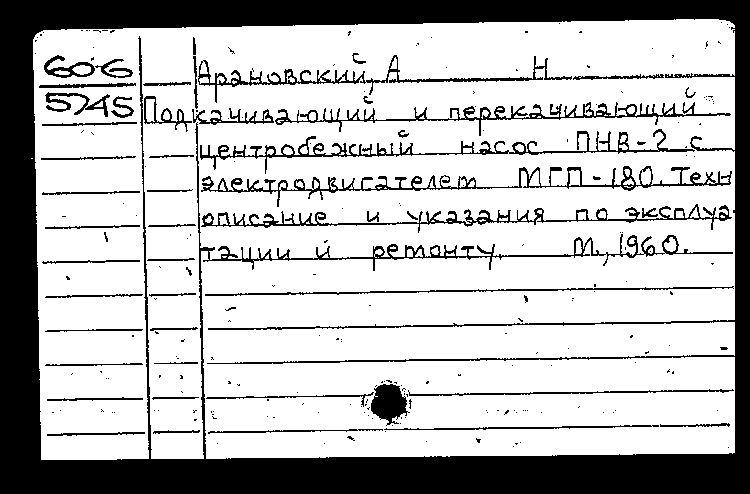 60-6
5745
Арановский, А Н
Подкачивающий и перекачивающий
центробежный насос ПНВ-2 с
электродвигателем МГП-180. Техн
описание и указания по эксплуа-
тации и ремонту. М., 1960.